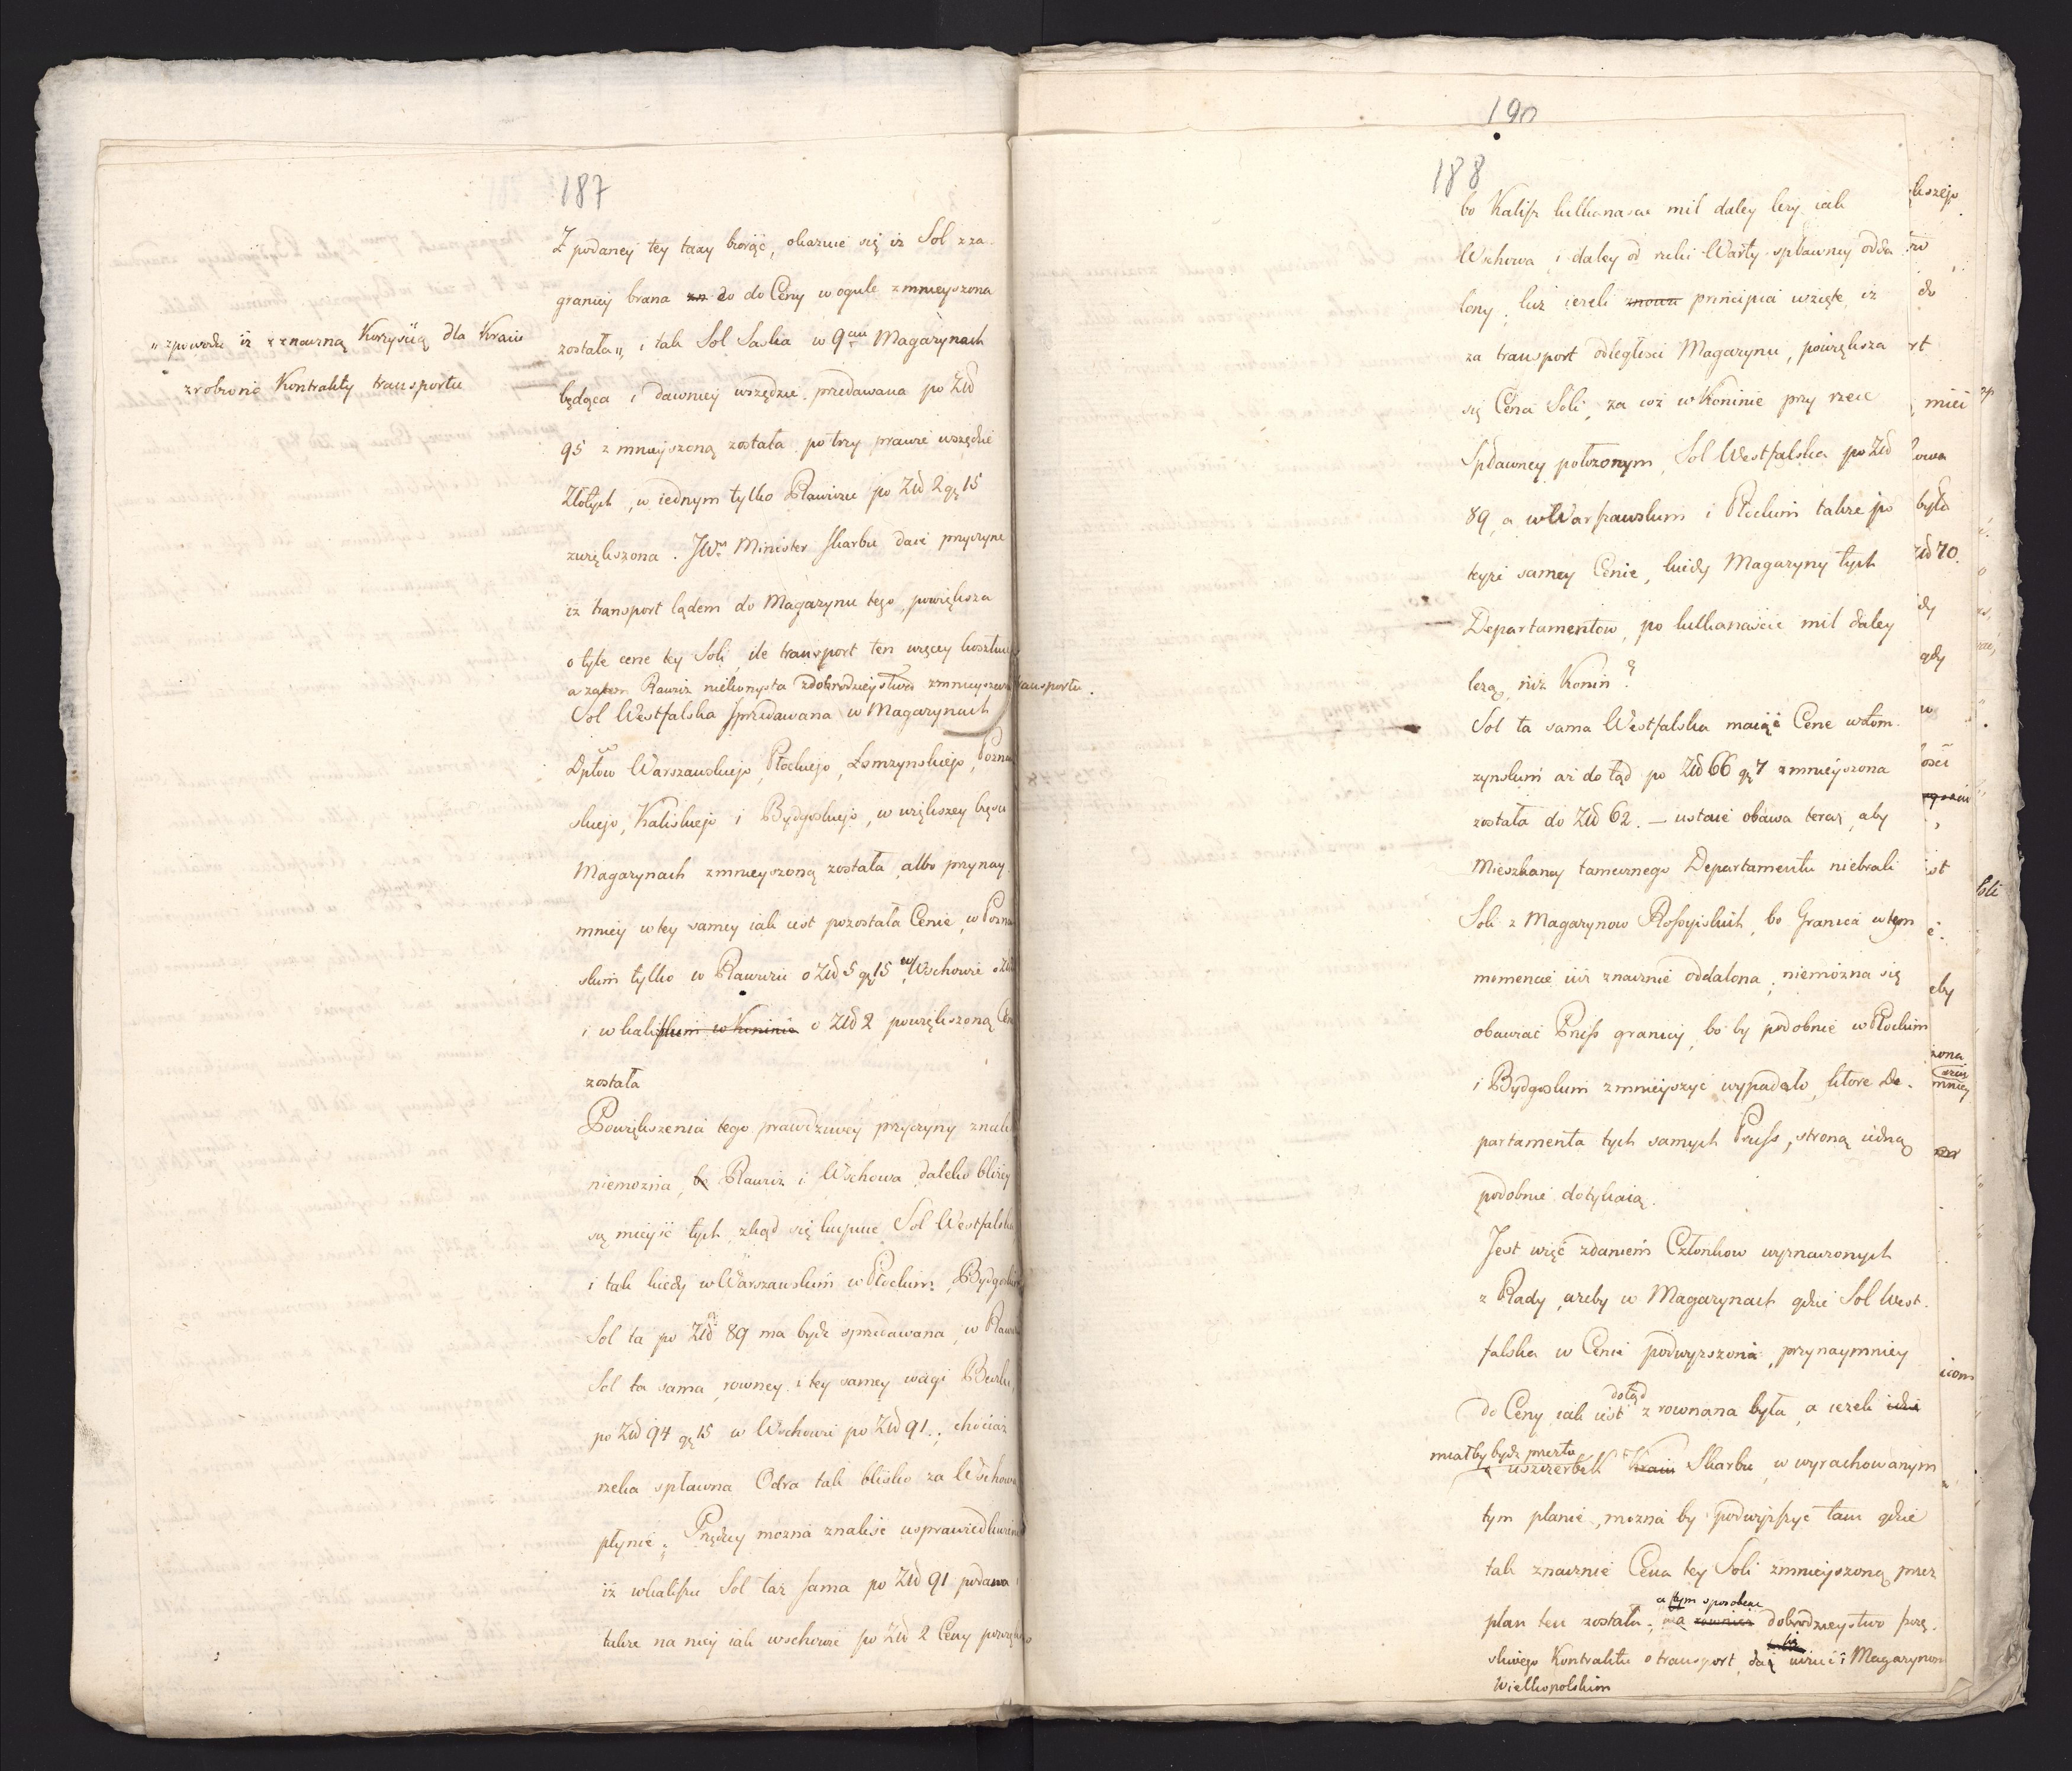 187
Z podaney tey taxy biorąc, okazuie się iz Sol z za-
granicy brana zn do do Ceny w ogule zmnieyszona
została „ i tak Sol Saska w 9ciu Magazynach
„ zpowodu iz z znaczną Korzyścią dla Kraiu
zrobiono Kontrakty transportu
będąca i dawniey wszędzie przedawana po Złd
95 zmnieyszoną została po trzy prawie wszędzie
Złotych, w iednym tylko Rawiczu po Złd 2 gr 15
zwiększona. JW Minister Skarbu daie przyczynę
iz transport lądem do Magazynu tego, powiększa
o tyle cene tey Soli, ile transport ten więcey kosztuie
a zatem Rawicz niekorzysta z dobrodzieystwa zmnieyszenia transportu.
Sol Westfalska sprzedawana w Magazynach
Dptow Warszawskiego, Płockiego, Łomzynskiego, Pozna
skiego, Kaliskiego i Bydgoskiego, w większey części
Magazynach zmnieyszoną została, albo przynay-
mniey w tey samey iak iest pozostała Cenie, w Pozna
skim tylko w Rawiczu o Złd 5 gr 15 w Wschowie o Złd
i w kaliskim w Koninie o Złd 2 powiększoną Cena
została
Powiększenia tego prawdziwey przyczyny znaleść
niemozna, bo Rawicz i Wschowa daleko bliżey
są mieysc tych zkąd się kupuie Sol Westfalska
i tak kiedy w Warszawskim w Płockim, Bydgoskim
Sol ta po Złd 89 ma bydz sprzedawana, w Rawiczu
Sol ta sama, rowney i tey samey wagi Beczka,
po Złd 94 gr 15 w Wschowie po Złd 91., chociaż
rzeka spławna Odra tak blisko za Wschową
płynie; Prędzey mozna znaleść usprawiedliwienie
iż w kaliszu Sol taz sama po Złd 91 podana
takze na niey iak w schowie po Złd 2 Ceny powięk
190
188
bo Kalisz kilkanascie mil daley lezy iak
Wschowa i daley od rzeki Warty spławney odda-
lony, lecz iezeli znowu principia wzięte, iz
za transport odległosci Magazynu, powiększa
się Cena Soli, za coż w Koninie przy rzece
Spławney połozonym, Sol Westfalska po Złd
89, a w Warszawskim i Płockim takze po
teyze samey Cenie, kiedy Magazyny tych
Departamentow, po kilkanaście mil daley
lezą, niż Konin?
Sol ta sama Westfalska maiąc Cene w Łom-
zynskim aż do tąd po Złd 66 gr 7 zmnieyszona
została do Złd 62. — ustaie obawa teraz, aby
Mieszkancy tamecznego Departamentu niebrali
Soli z Magazynow Rossyiskich, bo Granica w tym
momencie iuż znacznie oddalona, niemożna się
obawiać Pruss granicy, bo by podobnie w Płockim
i Bydgoskim zmnieyszyć wypadało, ktore De-
partamenta tych samych Pruss, stroną iedną
podobnie dotykaią.
Jest więc zdaniem Członkow wyznaczonych
z Rady, azeby w Magazynach gdzie Sol West-
falska w Cenie podwyzszoná, przynaymniey
do Ceny iak iest dotąd zrownana była, a iezeli
miałby bydz przezto
uszczerbek Kraiu Skarbu w wyrachowanym
tym planie, mozna by podwyższyć tam gdzie
tak znacznie Cena tey Soli zmnieyszoną przez
a tym sposobem
plan ten została, dobrodzieystwo szczę-
śliwego Kontraktu o transport, Magazynom
Wielkopolskim
kszego
do
rt
mieć
było
Złd 70.
gdy
w
ości
iest
eby
zona
mniey
Soli